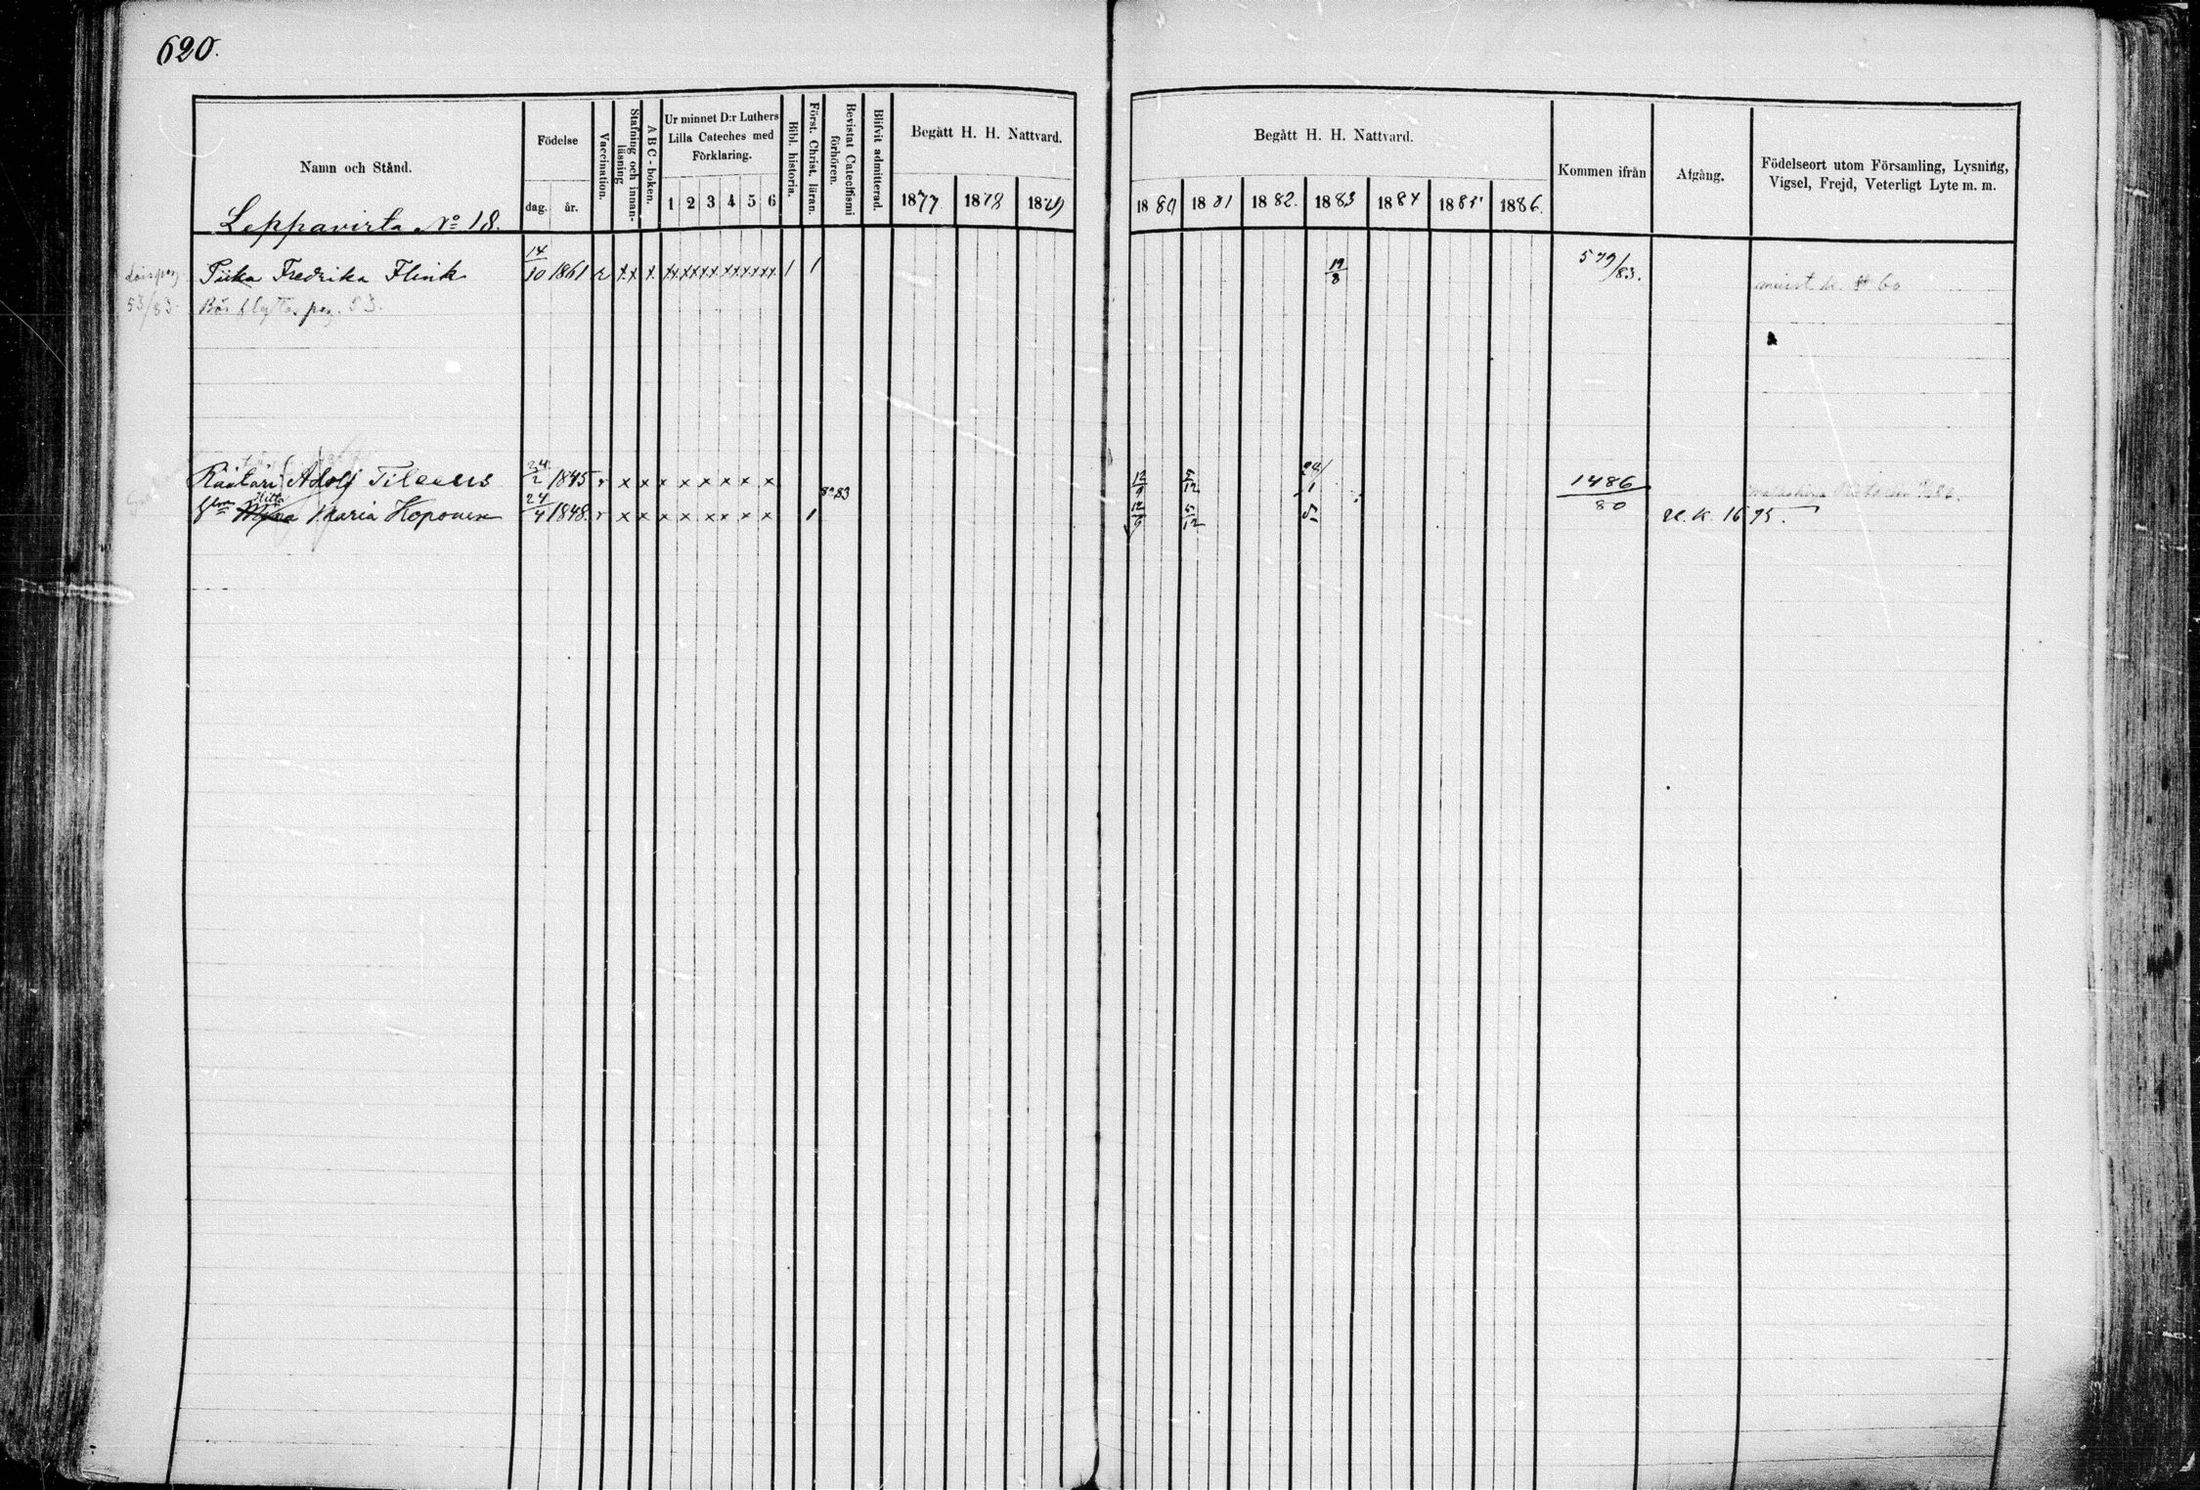 620.
Namn och Stånd.
Födelse
dag. år.
Vaccination.
Stafning och innanläsning
ABC-boken.
Ur minnet D:r Luthers Lilla Cateches med Förklaring.
1 2 3 4 5 6
Bibl. historia.
Först. Christ. läran.
Bevistat Catechismi förhören.
Blifvit admitterad.
Begått H. H. Nattvard.
1877 1878 1879
Begått H. H. Nattvard.
1880 1881 1882. 1883 1884 1885 1886.
Kommen ifrån
Afgång.
Födelseort utom Församling, Lysning, Vigsel, Frejd, Veterligt Lyte m. m.
Leppavirta No 18.
Piika Fredrika Flink 14/10 1861 v x x x x x x x x x x x x x x 1 1 19/8 579/83.
53/83 Bör flyttas pag. 53.
Räätäri Adolf Tileeus 24/2 1845 v x x x x x x x x x 12/9 5/12 1486/80
Maria Koponen 24/4 1848. v x x x x x x x x x 1 83 12/9 5/12 u. k. 1675.